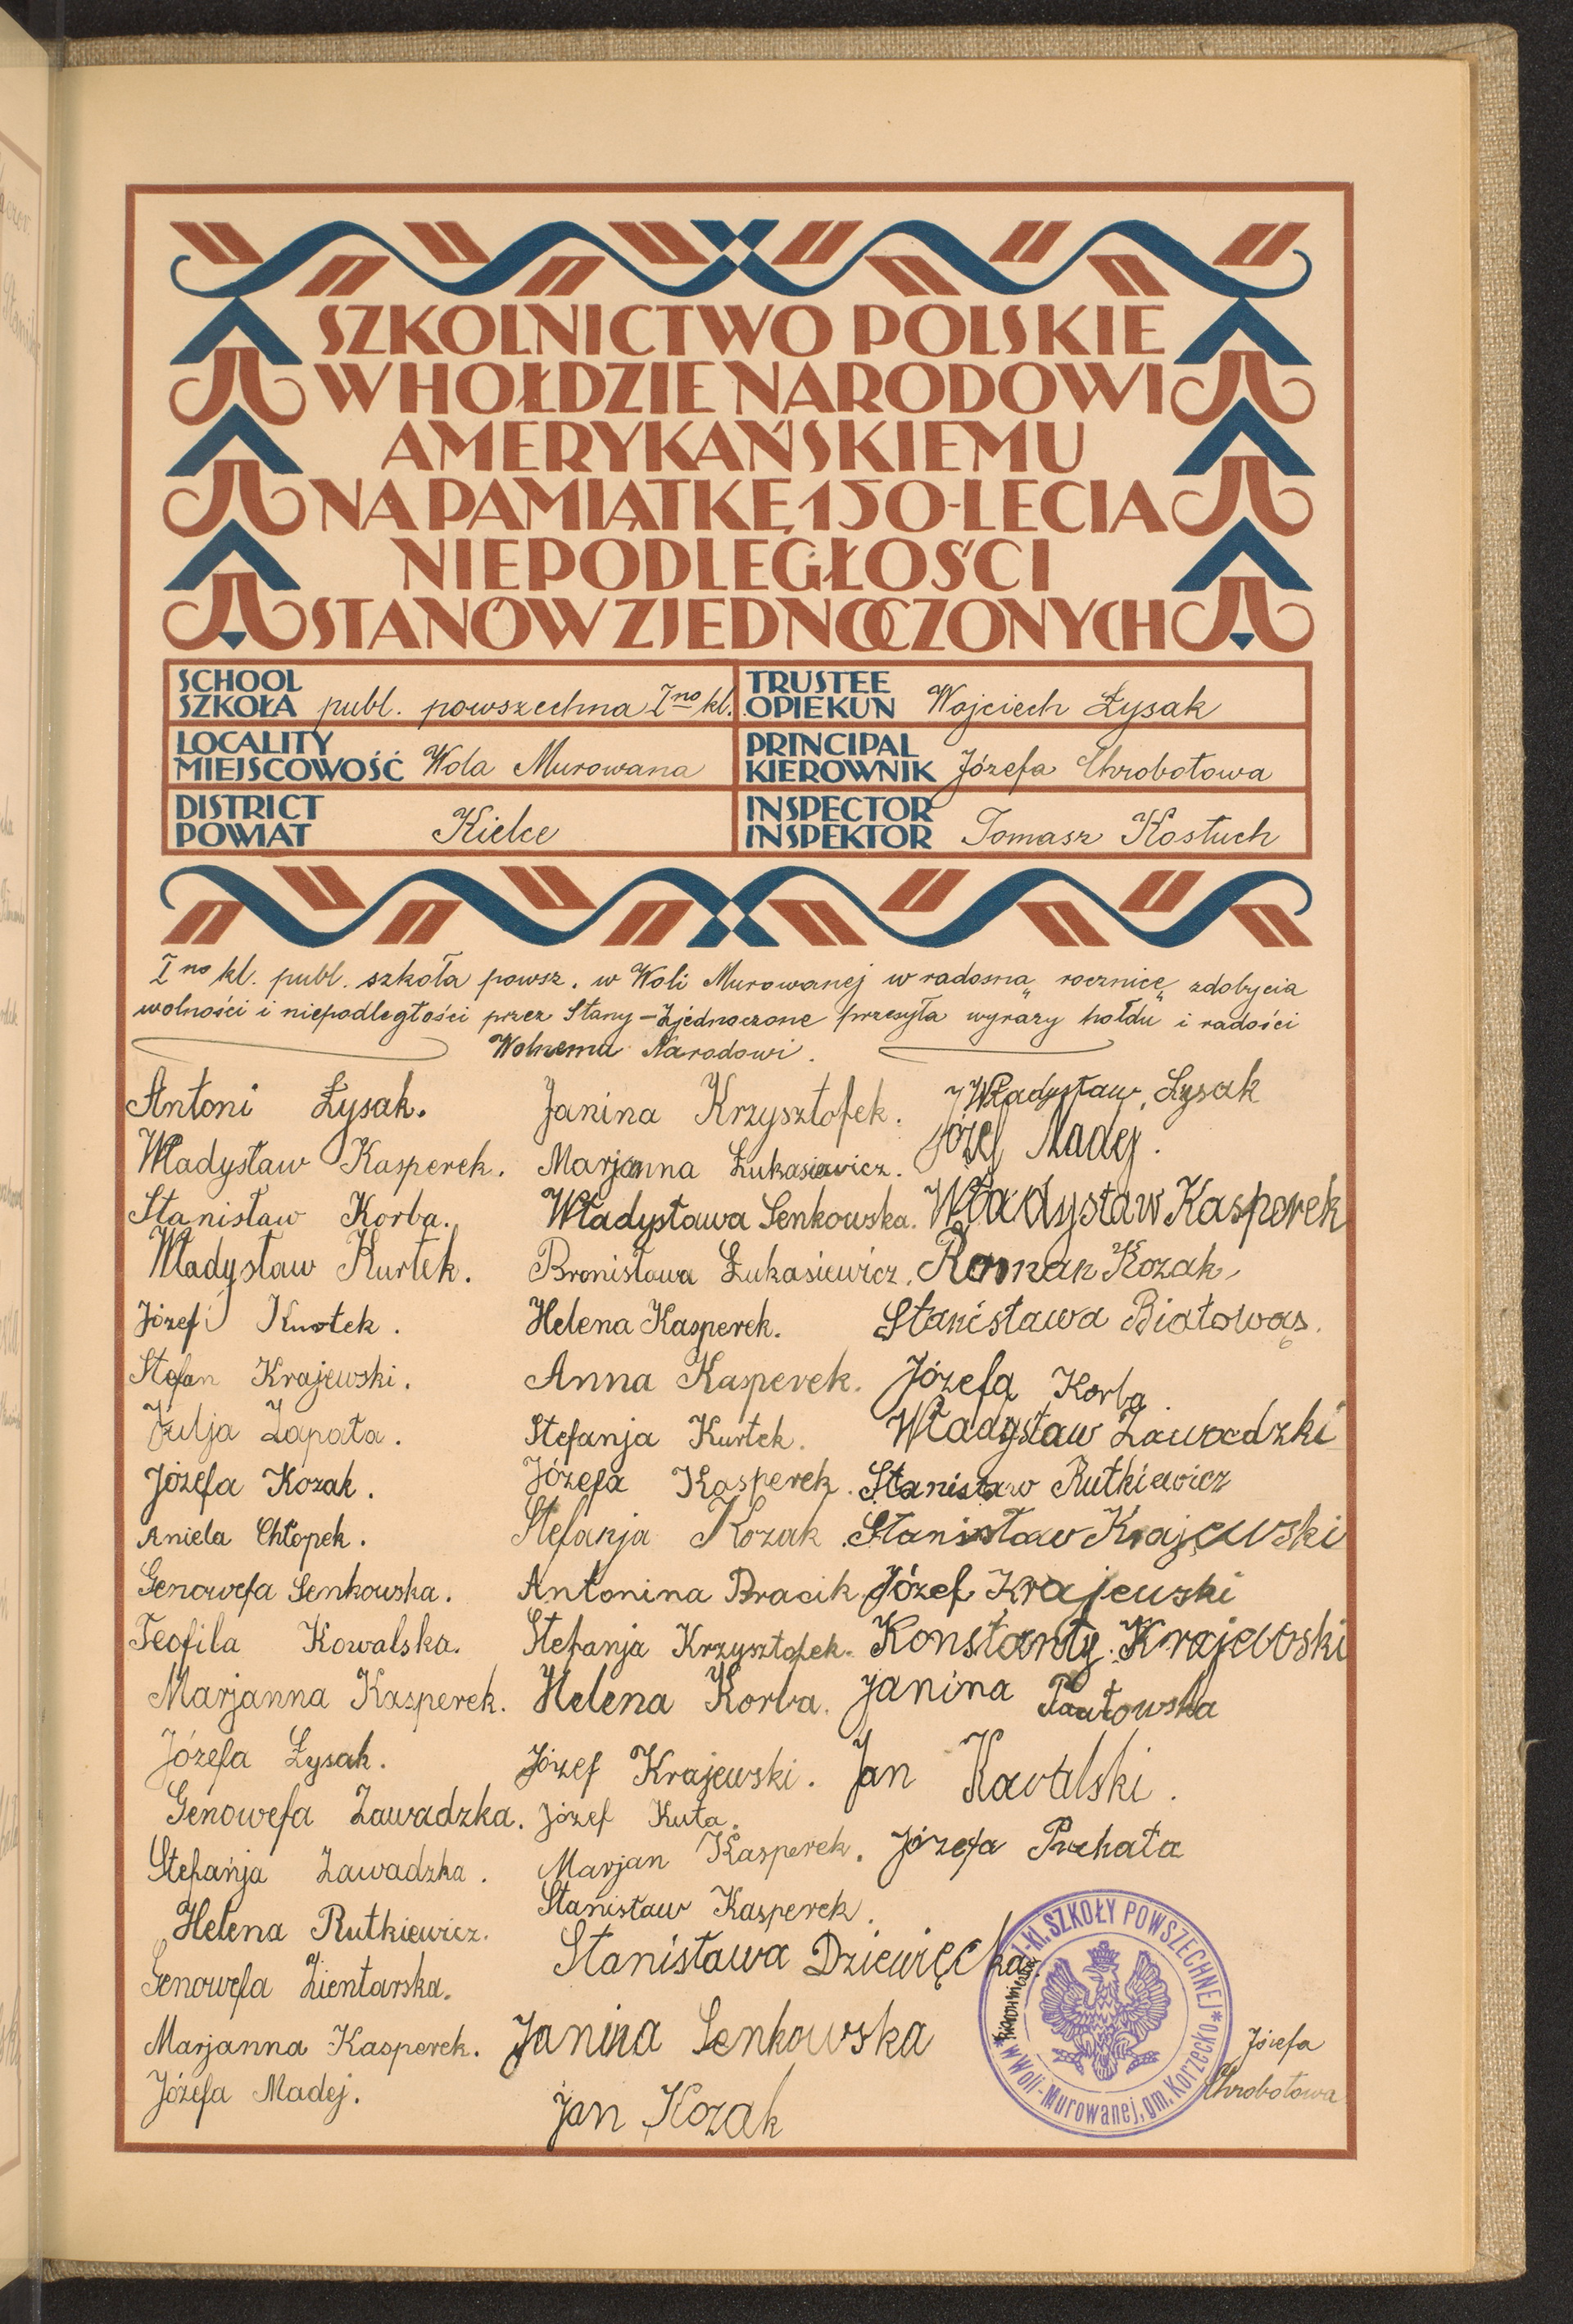 SZKOLNICTWO POLSKIE
W HOŁDZIE NARODOWI
AMERYKAŃSKIEMU
NA PAMIĄTKĘ 150-LECIA
NIEPODLEGŁOŚCI
STANÓW ZJEDNOCZONYCH
SCHOOL
SZKOŁA publ. powszechna I no kl.
TRUSTEE
OPIEKUN Wojciech Łysak
LOCALITY
MIEJSCOWOŚĆ Wola Murowana
PRINCIPAL
KIEROWNIK Józefa Chrobotowa
DISTRICT
POWIAT Kielce
INSPECTOR
INSPEKTOR Tomasz Kostuch
I no kl. publ. szkoła powsz. w Woli Murowanej w radosną rocznicę zdobycia
wolności i niepodległości przez Stany-Zjednoczone przesyła wyrazy hołdu i radości
Wolnemu Narodowi.
Antoni Łysak.
Władysław Kasperek.
Stanisław Korba.
Władysław Kurtek.
Józef Kurtek.
Stefan Krajewski.
Julja Zapała.
Józefa Kozak.
Aniela Chłopek.
Genowefa Senkowska.
Teofila Kowalska.
Marjanna Kasperek.
Józefa Łysak.
Genowefa Zawadzka.
Stefanja Zawadzka.
Helena Rutkiewicz.
Genowefa Zientarska.
Marjanna Kasperek.
Józefa Madej.
Janina Krzysztofek.
Marjanna Łukasiewicz.
Władysława Senkowska.
Bronisława Łukasiewicz.
Helena Kasperek.
Anna Kasperek.
Stefanja Kurtek.
Józefa Kasperek.
Stefanja Kozak.
Antonina Bracik
Stefanja Krzysztofek.
Helena Korba.
Józef Krajewski.
Józef Kuta.
Marjan Kasperek.
Stanisław Kasperek.
Stanisława Dziewięcka.
Janina Senkowska
Jan Kozak
Władysław Łysak
Józef Madej.
Władysław Kasperek
Roman Kozak
Stanisława Białowąs.
Józefa Korba
Władysław Zawadzki
Stanisław Rutkiewicz
Stanisław Krajewski
Józef Krajewski
Konstanty Krajewski
Janina
Jan Kowalski.
Józefa Puchała
1-kl. SZKOŁY POWSZECHNEJ * w Woli-Murowanej, gm. Korzecko *
Józefa
Chrobotowa